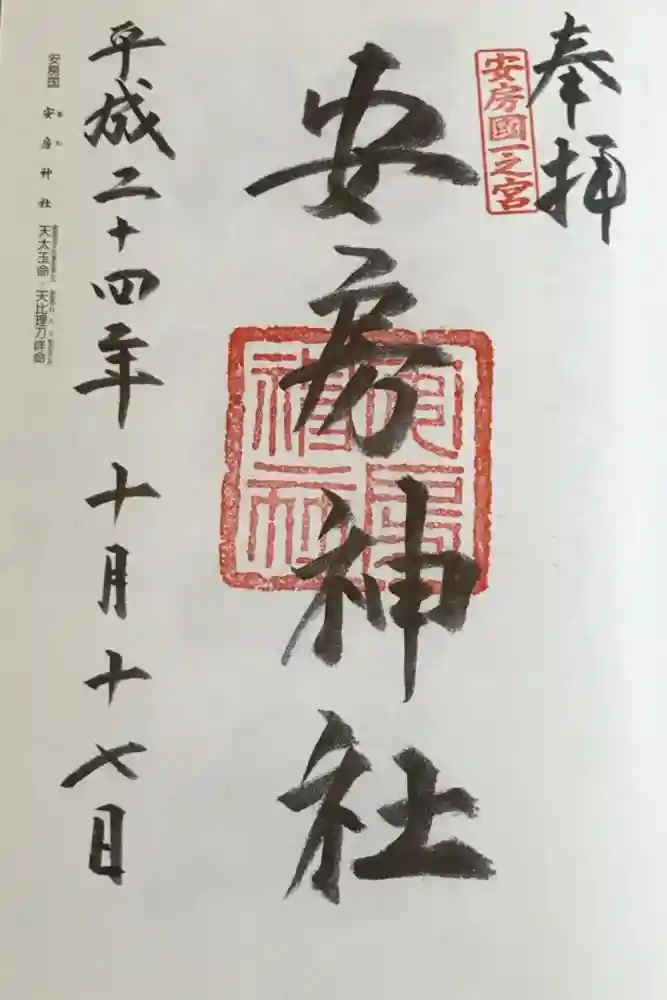 奉拝
安房國一之宮
安房神社
平成二十四年十月十七日
安房国 安房神社 天太玉命・天比理刀咩命